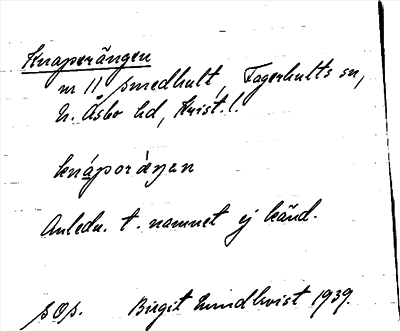 Knaporängen
nr 11 Smedhult, Fagerhults sn,
N. Åsbo hd, Krist. l.
knáporæŋen
Anledn. t. namnet ej känd.
sOp. Birgit Lundkvist 1939.